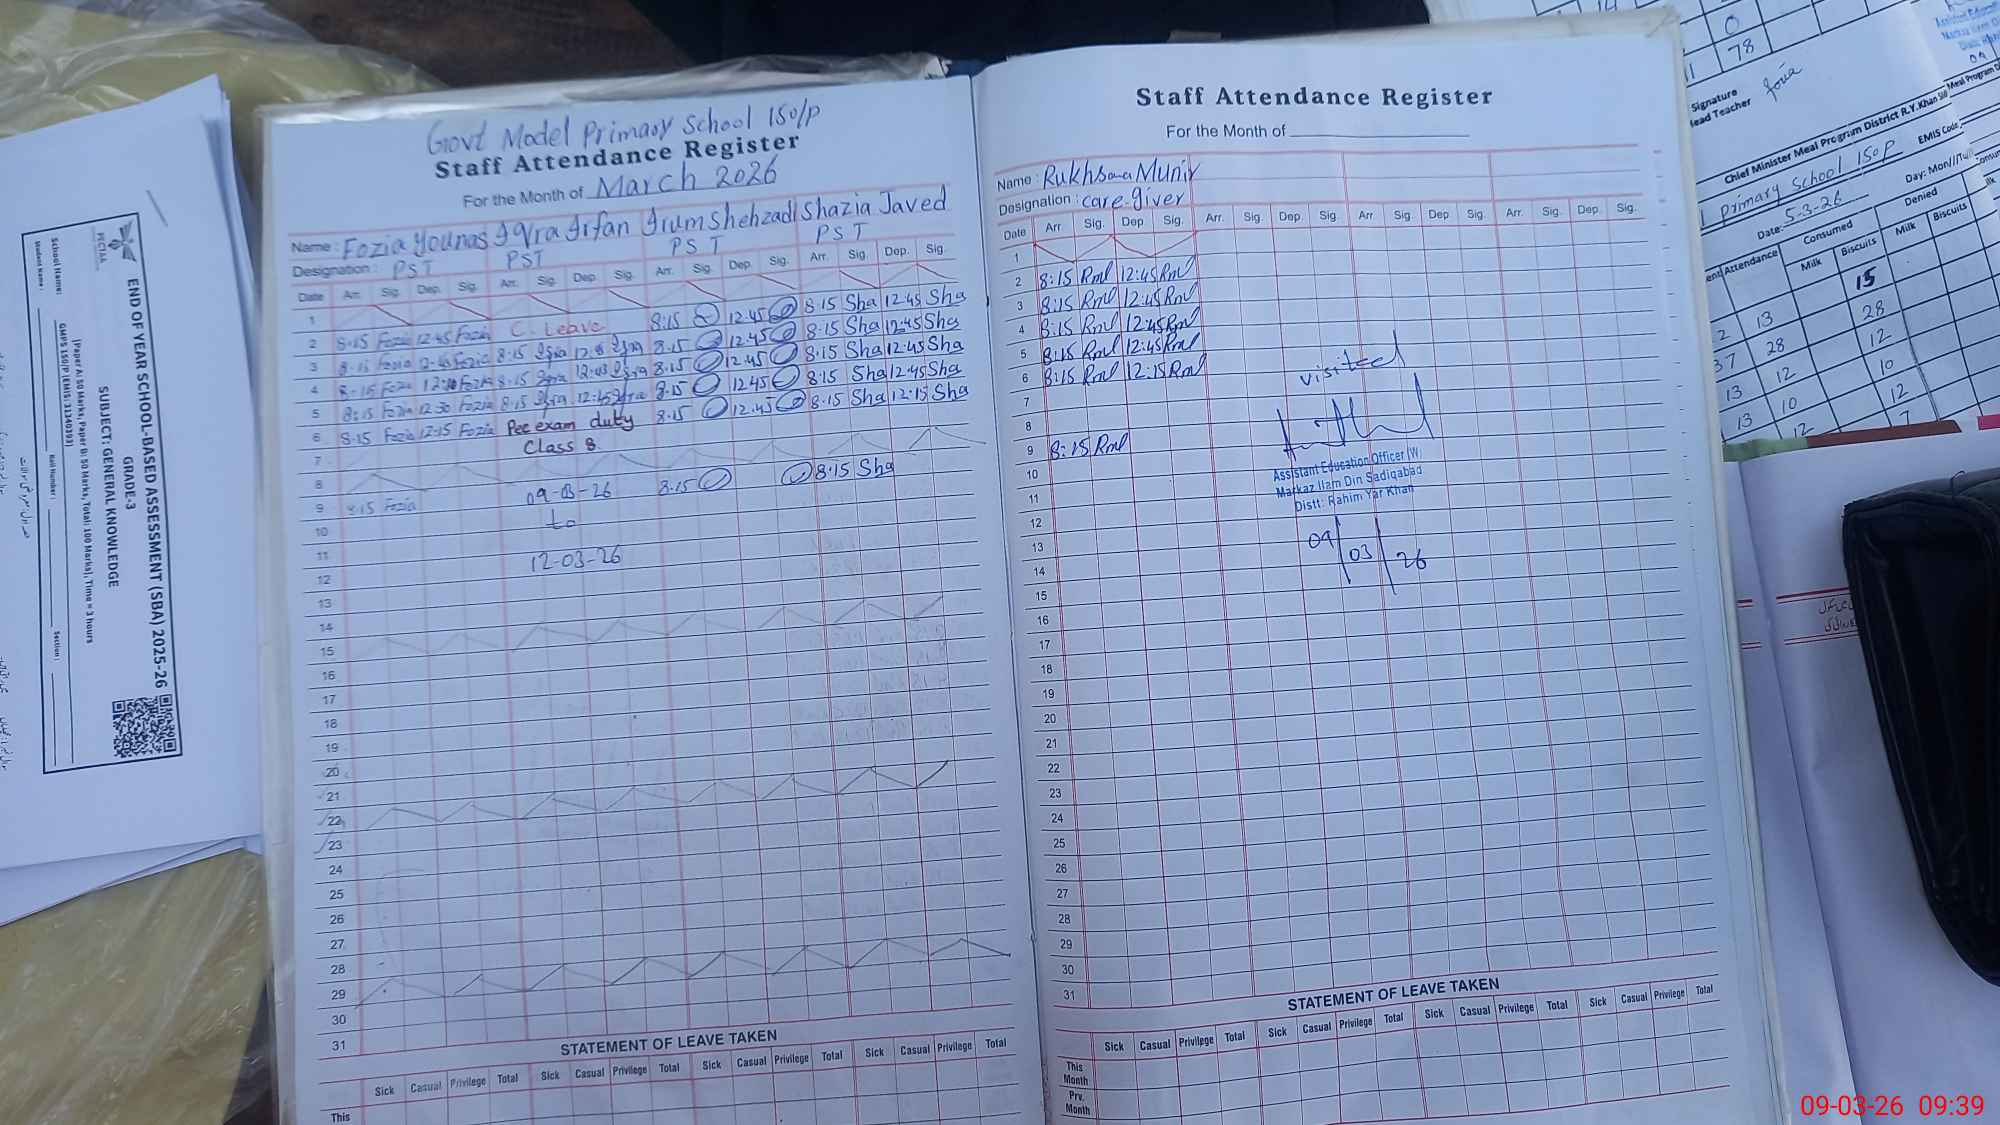 Govt Model Primary School 150/P
Staff Attendance Register
For the Month of March 2026
Name : Fozia Younas Iqra Irfan Irum Shehzadi Shazia Javed
Designation : PST PST PST PST
Date Arr. Sig. Dep. Sig. Arr. Sig. Dep. Sig. Arr. Sig. Dep. Sig. Arr. Sig. Dep. Sig.
1
2 8-15 Fozia 12-45 Fozia C. Leave 8:15 12.45 8.15 Sha 12:45 Sha
3 8-15 Fozia 12-45 Fozia 8-15 Iqra Iqra 8.15 12.45 8.15 Sha 12:45 Sha
4 8-15 Fozia Fozia 8-15 Iqra Iqra 8.15 12.45 8:15 Sha 12:45 Sha
5 8:15 Fozia 12-30 Fozia 8-15 Iqra 12-45 Iqra 8:15 12.45 8:15 Sha 12:45 Sha
6 8-15 Fozia 12-15 Fozia Pec exam duty 8:15 12.45 8:15 Sha 12:15 Sha
7 Class 8
8
9 8:15 Fozia 09-03-26 8.15 8:15 Sha
10 to
11
12 12-03-26
13
14
15
16
17
18
19
20
21
22
23
24
25
26
27
28
29
30
31
STATEMENT OF LEAVE TAKEN
Sick Casual Privilege Total Sick Casual Privilege Total Sick Casual Privilege Total Sick Casual Privilege Total
This
Staff Attendance Register
For the Month of
Name : Rukhsana Munir
Designation : care-giver
Date Arr. Sig. Dep. Sig. Arr. Sig. Dep. Sig. Arr. Sig. Dep. Sig. Arr. Sig. Dep. Sig.
1
2 8:15 Rml 12:45 Rml
3 8:15 Rml 12:45 Rml
4 8:15 Rml 12:45 Rml
5 8:15 Rml 12:45 Rml
6 8:15 Rml 12:15 Rml
7
8
9 8:15 Rml
10
11
12
13
14
15
16
17
18
19
20
21
22
23
24
25
26
27
28
29
30
31
visited
Assistant Education Officer (W)
Markaz Ilam Din Sadiqabad
Distt: Rahim Yar Khan
09/03/26
STATEMENT OF LEAVE TAKEN
Sick Casual Privilege Total Sick Casual Privilege Total Sick Casual Privilege Total Sick Casual Privilege Total
This Month
Prv. Month
PECTAA
END OF YEAR SCHOOL-BASED ASSESSMENT (SBA) 2025-26
GRADE-3
SUBJECT: GENERAL KNOWLEDGE
(Paper A: 50 Marks, Paper B: 50 Marks, Total: 100 Marks), Time = 3 hours
School Name: GMPS 150/P (EMIS: 31340393)
Student Name: Roll Number: Section:
14
0
78
Signature
ead Teacher Fozia
Chief Minister Meal Program District R.Y.Khan
Primary School 150P EMIS Code
Date: 5-3-26 Day: Mon/
Attendance Consumed Denied
Milk Biscuits Milk Biscuits
15
13 28
28 12
13 12 10
13 10 12
12 7
09-03-26 09:39